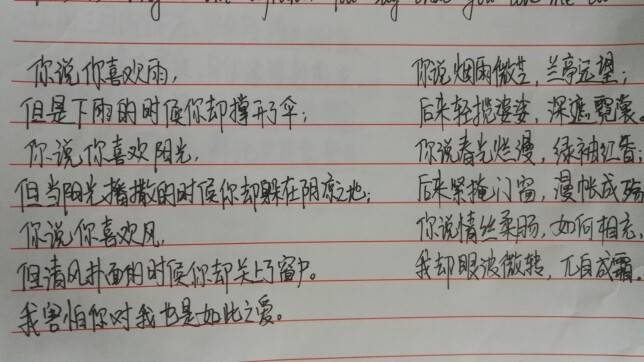 你说你喜欢雨，
但是下雨的时候你却撑开了伞；
你说你喜欢阳光，
但当阳光播撒的时候你却躲在阴凉之地；
你说你喜欢风，
但清风扑面的时候你却关上了窗户。
我害怕你对我也是如此之爱。
你说烟雨微芒，兰亭远望；
后来轻揽婆娑，深遮霓裳。
你说春光烂漫，绿袖红香；
后来紧掩门窗，漫帐成殇
你说情丝柔肠，如何相忘，
我却眼波微转，兀自成霜。